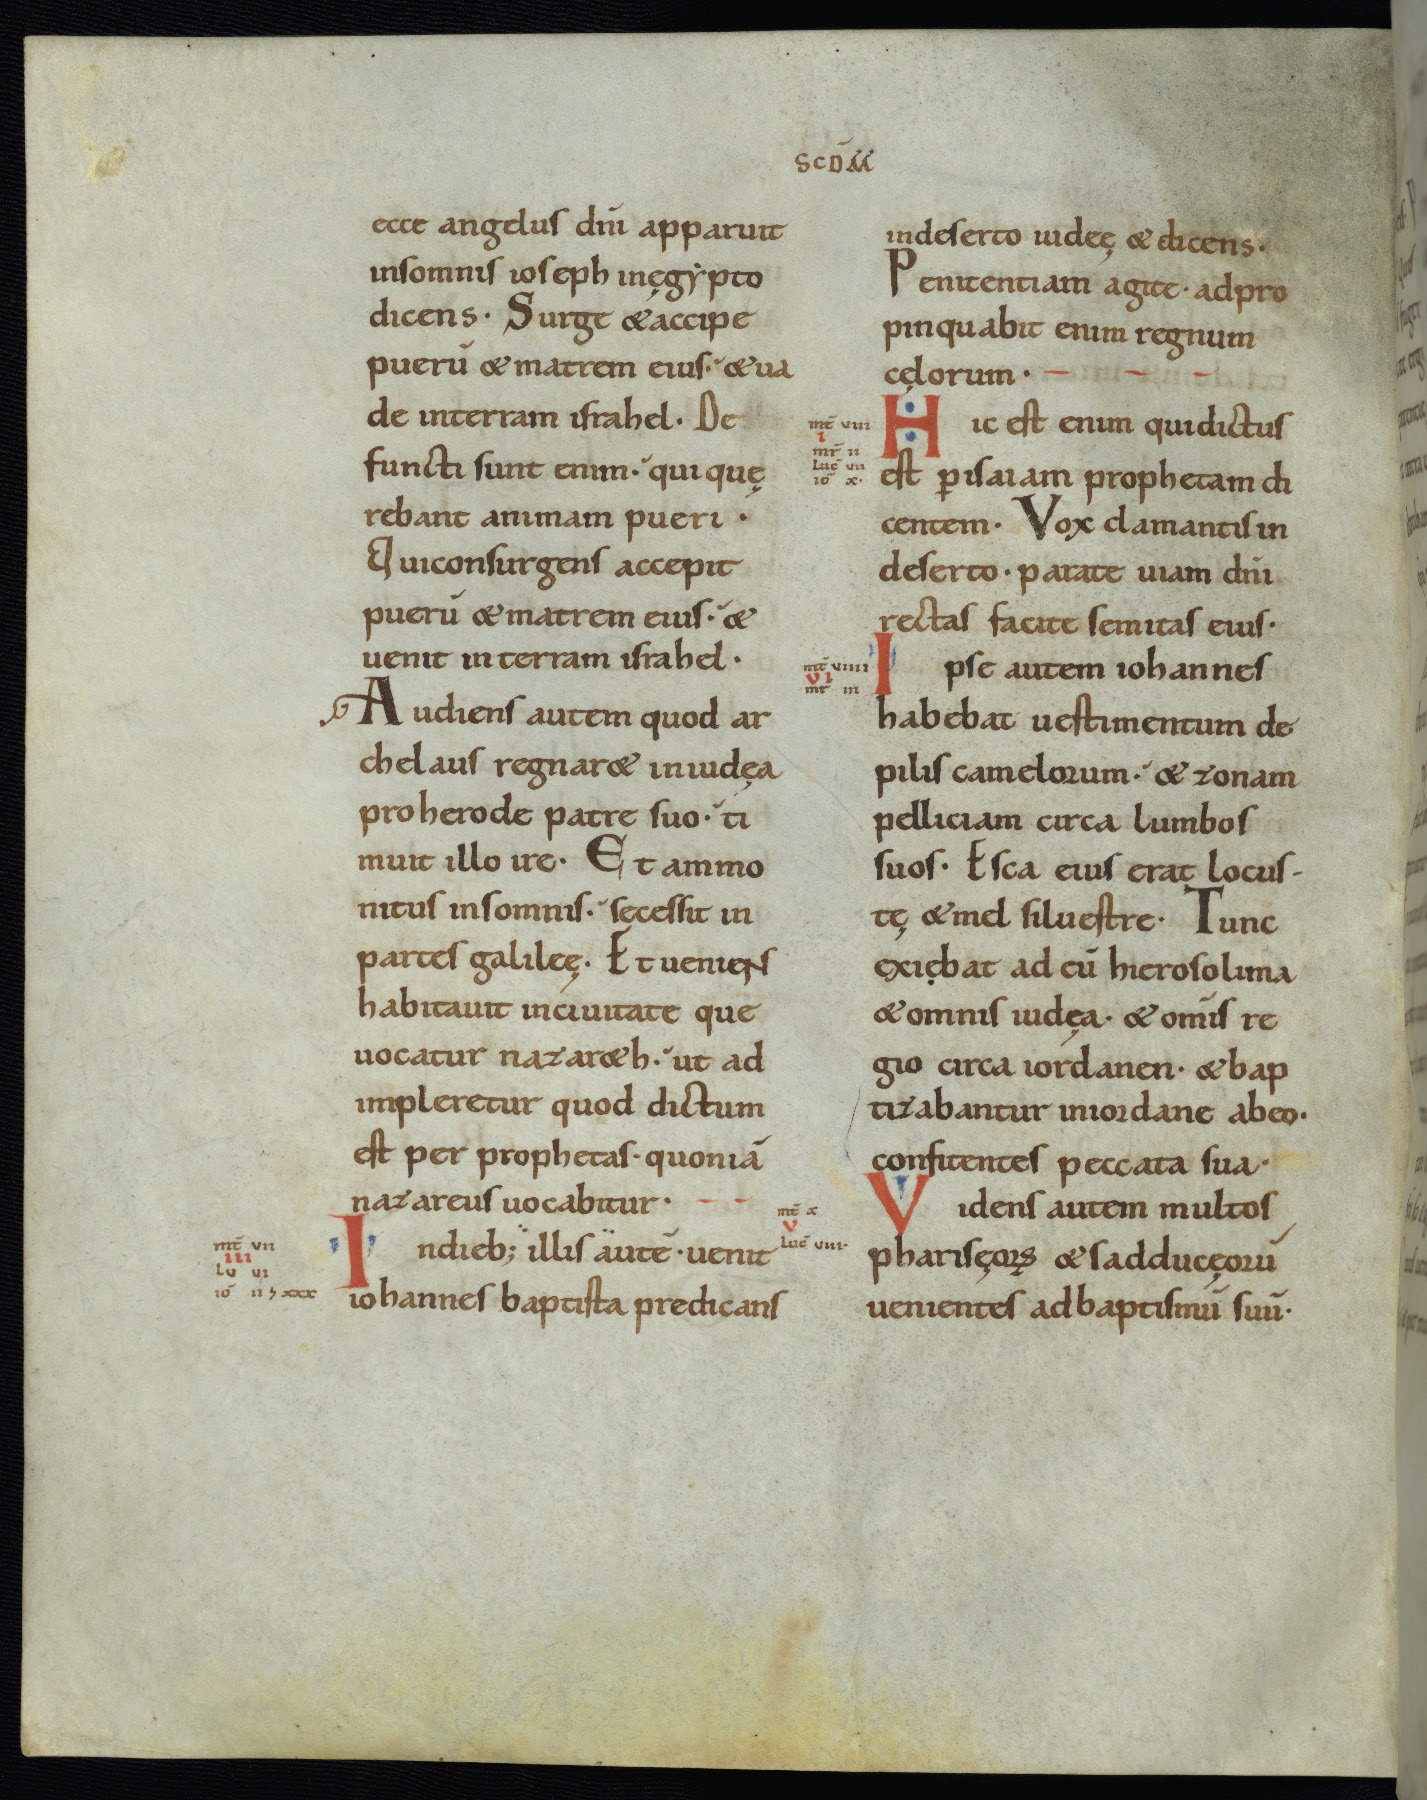 SCDM̄
ecce angelus dn̄i apparuit
insomnis ioseph inęgẏpto
dicens· Surge &accipe
puerū & matrem eius·́ &ua
de interram israhel· De
functi sunt enim·́ qui quę
rebant animam pueri ·
Quiconsurgens accepit
puerū & matrem eius·́ &
uenit in terram israhel·
Audiens autem quod ar
chelaus regnar& iniudęa
pro herode patre suo·́ ti
muit illo ire· Et ammo
nitus insomnis·́ secessit in
partes galileę· Et ueniens
habitauit inciuitate que
uocatur nazar&h·́ ut ad
impleretur quod dictum
est per prophetas· quoniā
nazareus uocabitur·
mt̄ vii
iii
lu vi
io̅ ii ⁊ xxx
Indieb; illis autē· uenit
iohannes baptista predicans
indeserto iudeę & dicens·
Penitentiam agite· adpro
pinquabit enim regnum
cęlorum·
mt̄ viii
i
mr̄ ii
luc̄ vii
io̅ x·
Hic est enim quidictus
est ꝑ isaiam prophetam di
centem· Vox clamantis in
deserto· parate uiam dn̄i
rectas facite semitas eius·
mt̄ viiii
vi
mr iii
Ipse autem iohannes
habebat uestimentum de
pilis camelorum·́ & zonam
pelliciam circa lumbos
suos· Esca eius erat locus-
tę & mel siluestre· Tunc
exiebat ad eū hierosolima
& omnis iudęa· & omīs re
gio circa iordanen· & bap
tizabantur iniordane abeo·
confitentes peccata sua·
mt̄ x
v
luc̄ viii·
Videns autem multos
pharisęoꝝ & sadducęorū
uenientes adbaptismū suū·